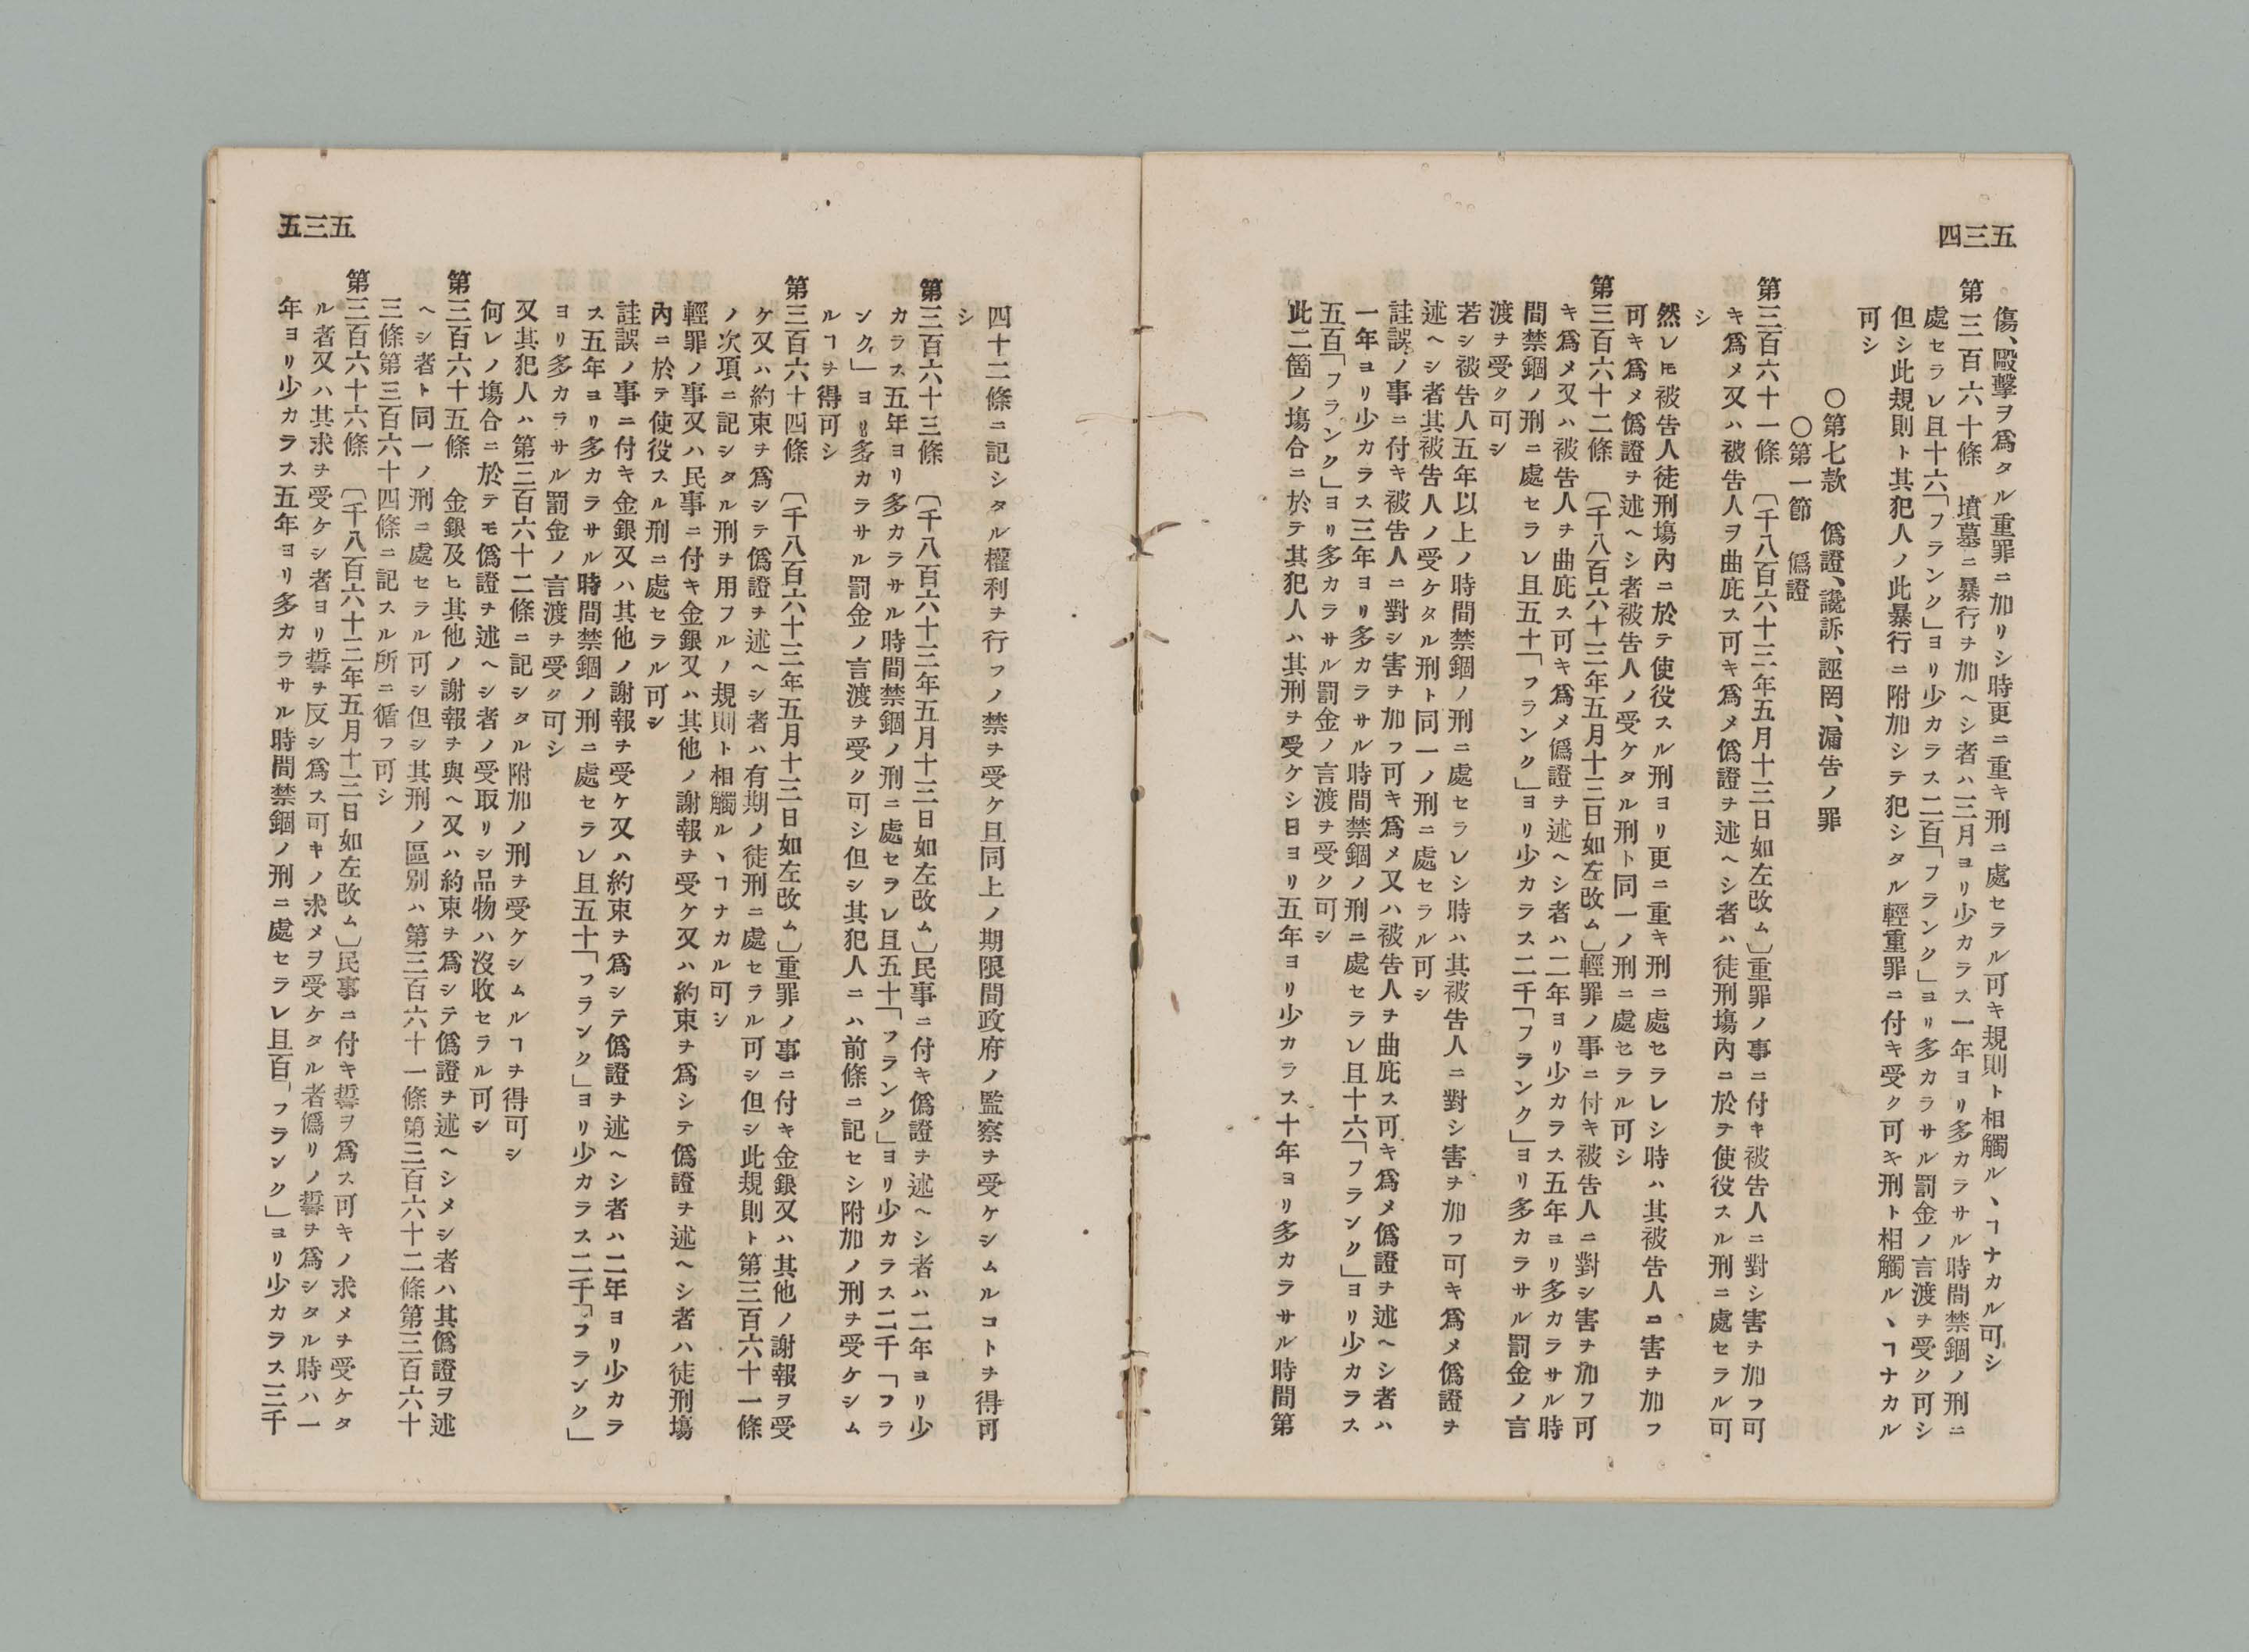 四三五
傷、毆擊ヲ爲タル重罪ニ加リシ時更ニ重キ刑ニ處セラル可キ規則ト相觸ルヽヿナカル可シ
第三百六十條　墳墓ニ暴行ヲ加ヘシ者ハ三月ヨリ少カラス一年ヨリ多カラサル時間禁錮ノ刑ニ
處セラレ且十六「フランク」ヨリ少カラス二百「フランク」ヨリ多カラサル罰金ノ言渡ヲ受ク可シ
但シ此規則ト其犯人ノ此暴行ニ附加シテ犯シタル輕重罪ニ付キ受ク可キ刑ト相觸ルヽヿナカル
可シ
〇第七款　僞證、讒訴、誣罔、漏告ノ罪
〇第一節　僞證
第三百六十一條　〔千八百六十三年五月十三日如左改ム〕重罪ノ事ニ付キ被告人ニ對シ害ヲ加フ可
キ爲メ又ハ被告人ヲ曲庇ス可キ爲メ僞證ヲ述ヘシ者ハ徒刑塲內ニ於テ使役スル刑ニ處セラル可
シ
然レ𪜈被告人徒刑塲內ニ於テ使役スル刑ヨリ更ニ重キ刑ニ處セラレシ時ハ其被告人ニ害ヲ加フ
可キ爲メ僞證ヲ述ヘシ者被告人ノ受ケタル刑ト同一ノ刑ニ處セラル可シ
第三百六十二條　〔千八百六十三年五月十三日如左改ム〕輕罪ノ事ニ付キ被告人ニ對シ害ヲ加フ可
キ爲メ又ハ被告人ヲ曲庇ス可キ爲メ僞證ヲ述ヘシ者ハ二年ヨリ少カラス五年ヨリ多カラサル時
間禁錮ノ刑ニ處セラレ且五十「フランク」ヨリ少カラス二千「フランク」ヨリ多カラサル罰金ノ言
渡ヲ受ク可シ
若シ被告人五年以上ノ時間禁錮ノ刑ニ處セラレシ時ハ其被告人ニ對シ害ヲ加フ可キ爲メ僞證ヲ
述ヘシ者其被告人ノ受ケタル刑ト同一ノ刑ニ處セラル可シ
註誤ノ事ニ付キ被告人ニ對シ害ヲ加フ可キ爲メ又ハ被告人ヲ曲庇ス可キ爲メ僞證ヲ述ヘシ者ハ
一年ヨリ少カラス三年ヨリ多カラサル時間禁錮ノ刑ニ處セラレ且十六「フランク」ヨリ少カラス
五百「フランク」ヨリ多カラサル罰金ノ言渡ヲ受ク可シ
此二箇ノ塲合ニ於テ其犯人ハ其刑ヲ受ケシ日ヨリ五年ヨリ少カラス十年ヨリ多カラサル時間第
五三五
四十二條ニ記シタル權利ヲ行フノ禁ヲ受ケ且同上ノ期限間政府ノ監察ヲ受ケシムルコトヲ得可
シ
第三百六十三條　〔千八百六十三年五月十三日如左改ム〕民事ニ付キ僞證ヲ述ヘシ者ハ二年ヨリ少
カラス五年ヨリ多カラサル時間禁錮ノ刑ニ處セラレ且五十「フランク」ヨリ少カラス二千「フラ
ンク」ヨリ多カラサル罰金ノ言渡ヲ受ク可シ但シ其犯人ニハ前條ニ記セシ附加ノ刑ヲ受ケシム
ルヿヲ得可シ
第三百六十四條　〔千八百六十三年五月十三日如左改ム〕重罪ノ事ニ付キ金銀又ハ其他ノ謝報ヲ受
ケ又ハ約束ヲ爲シテ僞證ヲ述ヘシ者ハ有期ノ徒刑ニ處セラル可シ但シ此規則ト第三百六十一條
ノ次項ニ記シタル刑ヲ用フルノ規則ト相觸ルヽヿナカル可シ
輕罪ノ事又ハ民事ニ付キ金銀又ハ其他ノ謝報ヲ受ケ又ハ約束ヲ爲シテ僞證ヲ述ヘシ者ハ徒刑塲
內ニ於テ使役スル刑ニ處セラル可シ
註誤ノ事ニ付キ金銀又ハ其他ノ謝報ヲ受ケ又ハ約束ヲ爲シテ僞證ヲ述ヘシ者ハ二年ヨリ少カラ
ス五年ヨリ多カラサル時間禁錮ノ刑ニ處セラレ且五十「フランク」ヨリ少カラス二千「フランク」
ヨリ多カラサル罰金ノ言渡ヲ受ク可シ
又其犯人ハ第三百六十二條ニ記シタル附加ノ刑ヲ受ケシムルヿヲ得可シ
何レノ塲合ニ於テモ僞證ヲ述ヘシ者ノ受取リシ品物ハ沒收セラル可シ
第三百六十五條　金銀及ヒ其他ノ謝報ヲ與ヘ又ハ約束ヲ爲シテ僞證ヲ述ヘシメシ者ハ其僞證ヲ述
ヘシ者ト同一ノ刑ニ處セラル可シ但シ其刑ノ區別ハ第三百六十一條第三百六十二條第三百六十
三條第三百六十四條ニ記スル所ニ循フ可シ
第三百六十六條　〔千八百六十三年五月十三日如左改ム〕民事ニ付キ誓ヲ爲ス可キノ求メヲ受ケタ
ル者又ハ其求ヲ受ケシ者ヨリ誓ヲ反シ爲ス可キノ求メヲ受ケタル者僞リノ誓ヲ爲シタル時ハ一
年ヨリ少カラス五年ヨリ多カラサル時間禁錮ノ刑ニ處セラレ且百「フランク」ヨリ少カラス三千